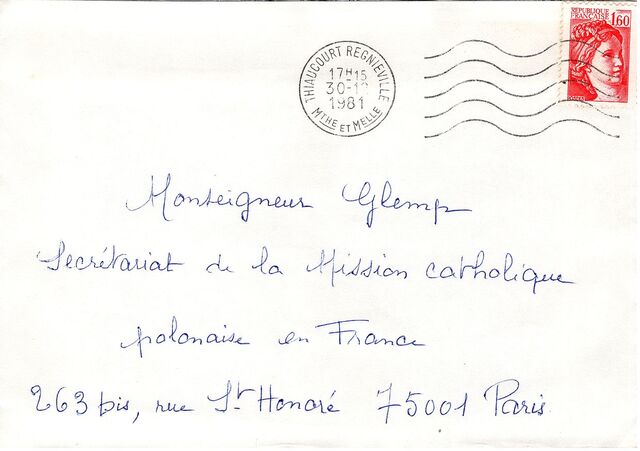 RÉPUBLIQUE
FRANÇAISE 1,60
THIAUCOURT REGNIEVILLE
17H15
30-12
1981
MTHE ET MELLE
Monseigneur Glemp
Secrétariat de la Mission catholique
polonaise en France
263 bis, rue St Honoré 75001 Paris